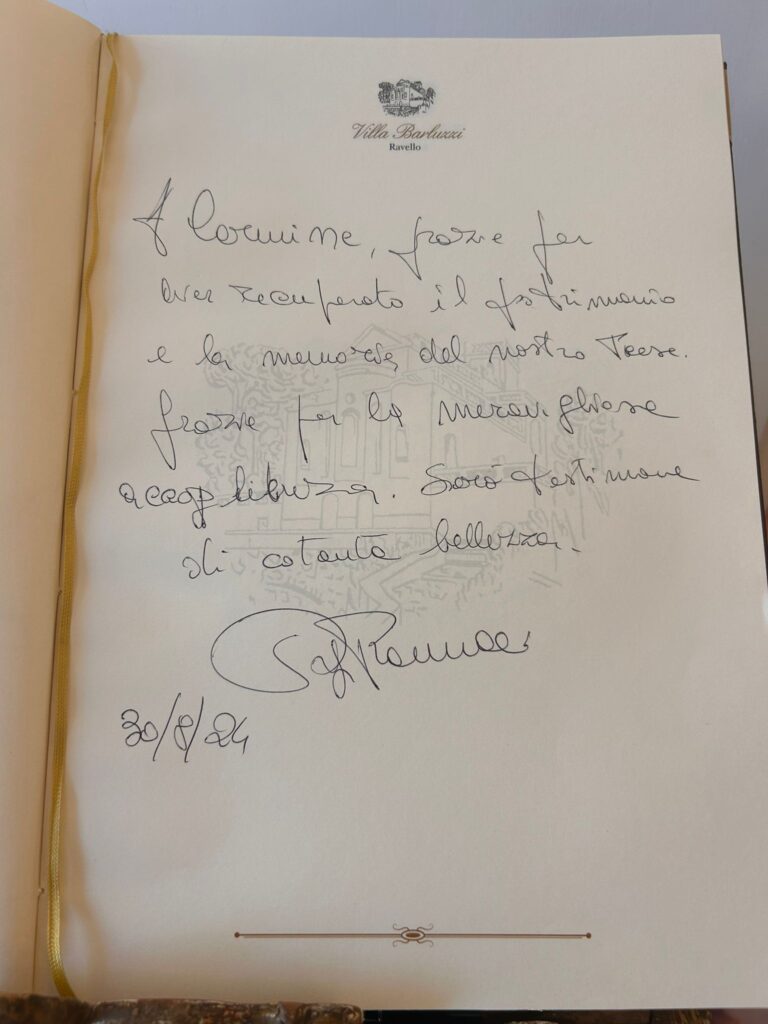 Villa Barluzzi
Ravello
A Carmine, grazie per
aver recuperato il patrimonio
e la memoria del nostro Paese.
Grazie per la meravigliosa
accoglienza. Sarò testimone
di cotanta bellezza.
30/8/24